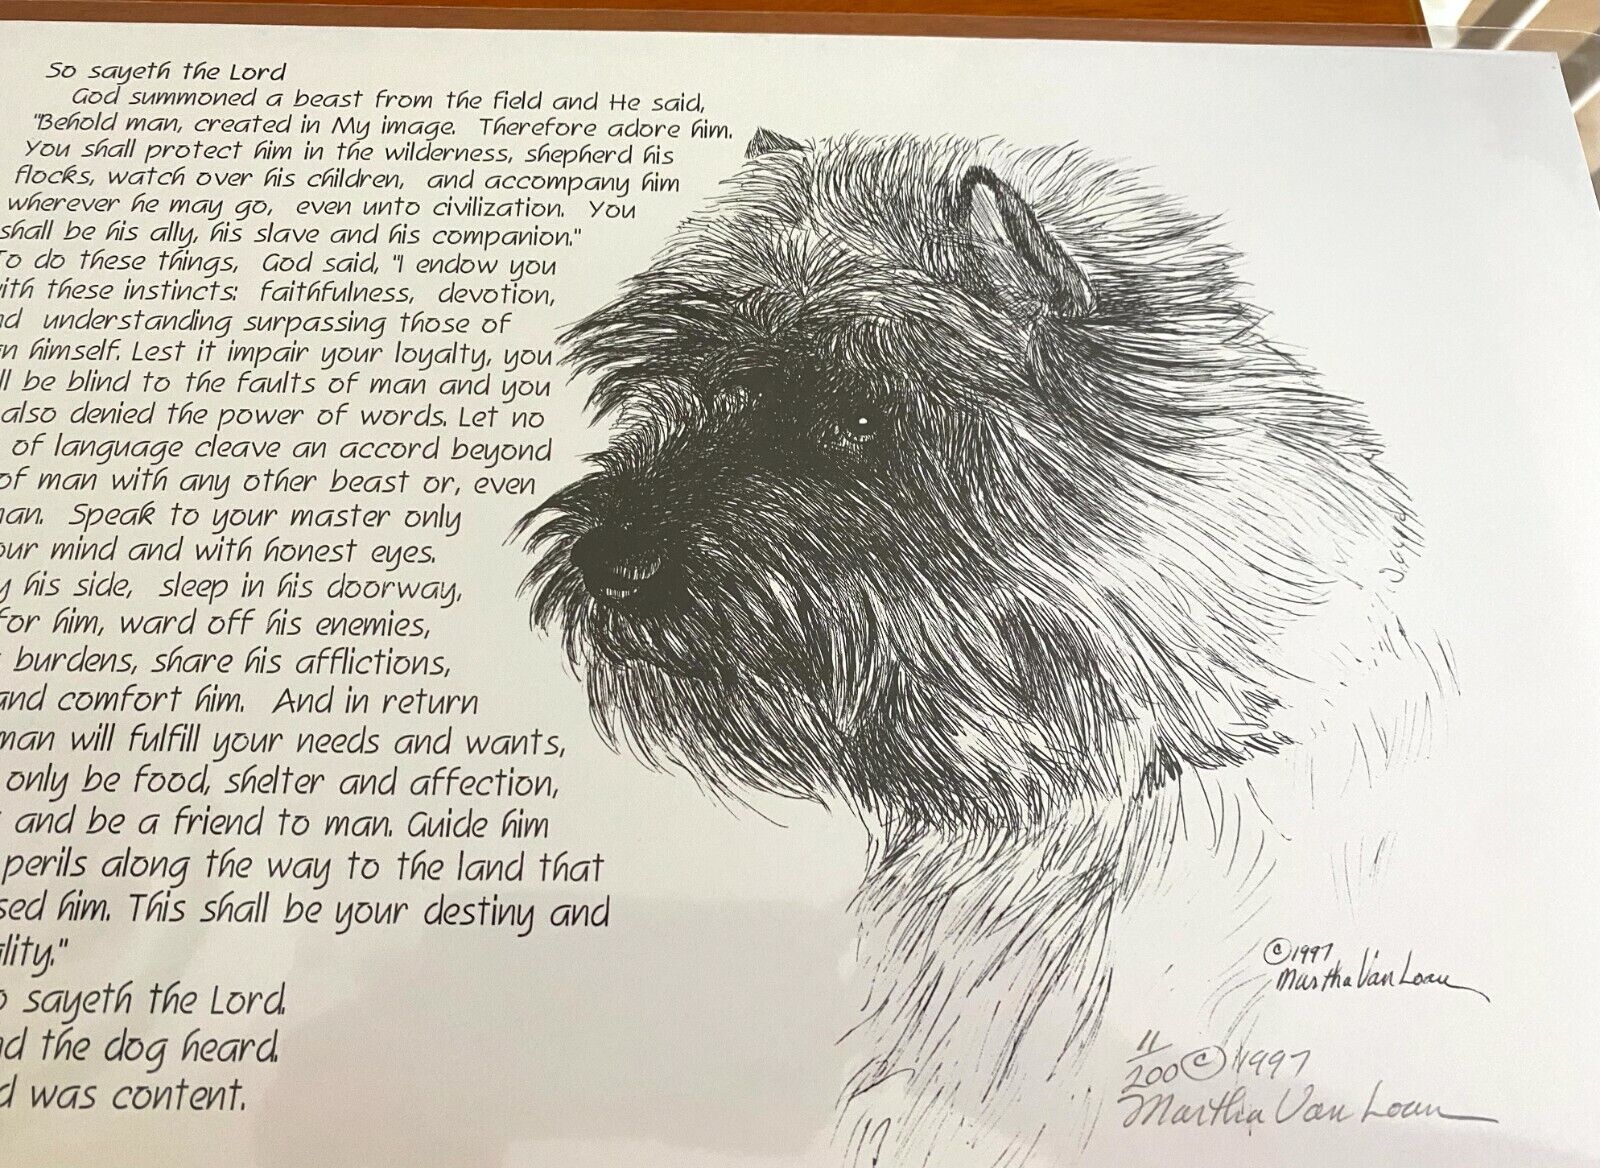 So sayeth the Lord
God summoned a beast from the field and He said,
"Behold man, created in My image. Therefore adore him.
You shall protect him in the wilderness, shepherd his
flocks, watch over his children, and accompany him
wherever he may go, even unto civilization. You
shall be his ally, his slave and his companion."
To do these things, God said, "I endow you
ith these instincts: faithfulness, devotion,
nd understanding surpassing those of
n himself. Lest it impair your loyalty, you
ll be blind to the faults of man and you
also denied the power of words. Let no
of language cleave an accord beyond
of man with any other beast or, even
an. Speak to your master only
our mind and with honest eyes.
y his side, sleep in his doorway,
for him, ward off his enemies,
burdens, share his afflictions,
and comfort him. And in return
man will fulfill your needs and wants,
only be food, shelter and affection,
and be a friend to man. Guide him
perils along the way to the land that
sed him. This shall be your destiny and
lity."
o sayeth the Lord.
nd the dog heard.
d was content.
©1997
Martha Van Loan
11/200 © 1997
Martha Van Loan